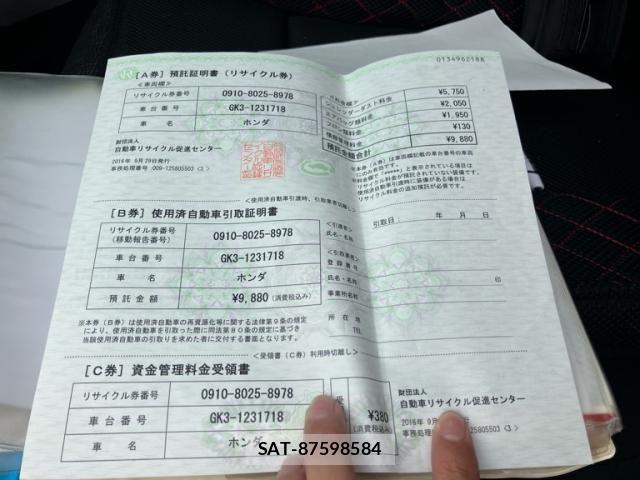 0134962188
[A券] 預託証明書 (リサイクル券)
<車両欄>
リサイクル券番号 0910-8025-8978
車台番号 GK3-1231718
車名 ホンダ
シュレッダーダスト料金 ¥5,750
エアバッグ類料金 ¥2,050
フロン類料金 ¥1,950
情報管理料金 ¥130
預託金額合計 ¥9,880
財団法人
自動車リサイクル促進センター
2016年 9月29日発行
事務処理番号:009-125805503 <3>
※本券(A券)は車両欄記載の車台番号の車両
にのみ有効です。
<使用済自動車引渡時、引取業者切離し>
[B券] 使用済自動車引取証明書
リサイクル券番号
(移動報告番号) 0910-8025-8978
車台番号 GK3-1231718
車名 ホンダ
預託金額 ¥9,880 (消費税込み)
引取日: 年 月 日
<引渡者>
氏名・名称
<引取業者>
登録番号
氏名・名称 印
事業所名称
所在地
TEL
※本券(B券)は使用済自動車の再資源化等に関する法律第9条の規定
により、使用済自動車を引取った際に同法第80条の規定に基づき
当該使用済自動車の引取りを求めた者に交付する書面となります。
<受領書(C券)利用時切離し>
[C券] 資金管理料金受領書
リサイクル券番号 0910-8025-8978
車台番号 GK3-1231718
車名 ホンダ
¥380
(消費税込み)
財団法人
自動車リサイクル促進センター
2016年 9月
事務処理番号 25805503 <3>
SAT-87598584